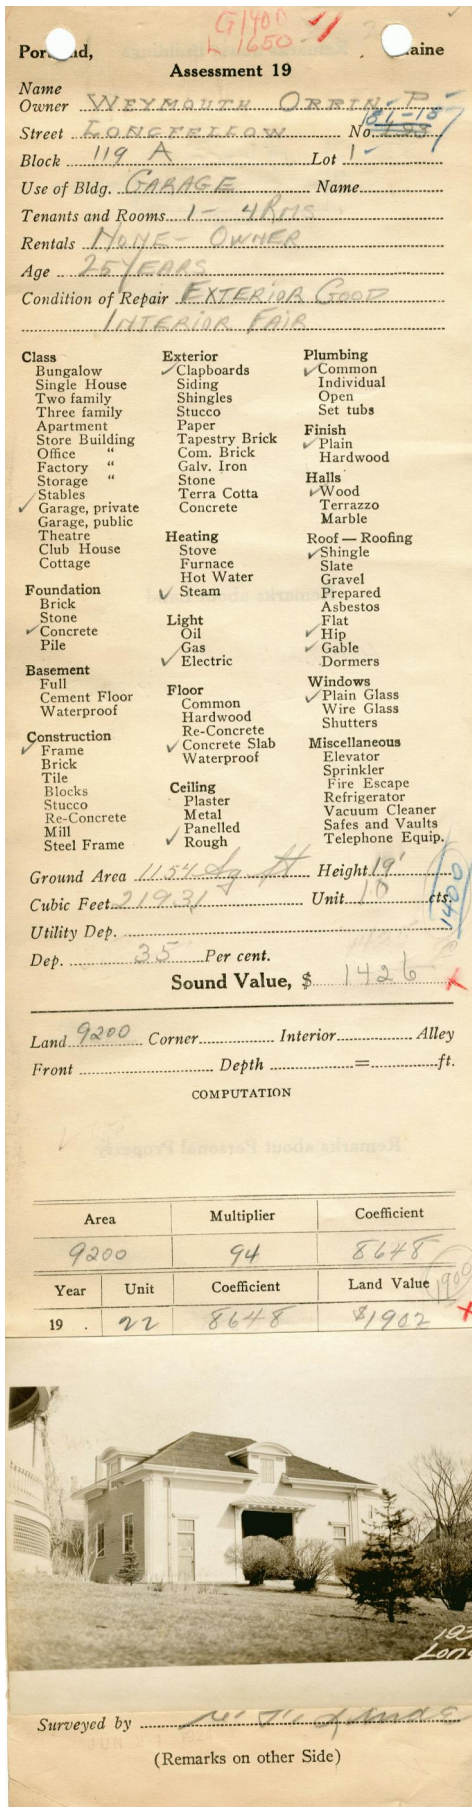 G 1400
L 1650
Portland, Maine
Assessment 19
Name
Owner WEYMOUTH ORRIN P
Street LONGFELLOW No. 193 181-187
Block 119 A Lot 1
Use of Bldg. GARAGE Name
Tenants and Rooms 1 - 4 RMS
Rentals NONE - OWNER
Age 25 YEARS
Condition of Repair EXTERIOR GOOD
INTERIOR FAIR
Class
Bungalow
Single House
Two family
Three family
Apartment
Store Building
Office "
Factory "
Storage "
Stables
✓ Garage, private
Garage, public
Theatre
Club House
Cottage
Foundation
Brick
Stone
✓ Concrete
Pile
Basement
Full
Cement Floor
Waterproof
Construction
✓ Frame
Brick
Tile
Blocks
Stucco
Re-Concrete
Mill
Steel Frame
Exterior
✓ Clapboards
Siding
Shingles
Stucco
Paper
Tapestry Brick
Com. Brick
Galv. Iron
Stone
Terra Cotta
Concrete
Heating
Stove
Furnace
Hot Water
✓ Steam
Light
Oil
✓ Gas
✓ Electric
Floor
Common
Hardwood
Re-Concrete
✓ Concrete Slab
Waterproof
Ceiling
Plaster
Metal
✓ Panelled
✓ Rough
Plumbing
✓ Common
Individual
Open
Set tubs
Finish
✓ Plain
Hardwood
Halls
✓ Wood
Terrazzo
Marble
Roof — Roofing
✓ Shingle
Slate
Gravel
Prepared
Asbestos
Flat
✓ Hip
✓ Gable
Dormers
Windows
✓ Plain Glass
Wire Glass
Shutters
Miscellaneous
Elevator
Sprinkler
Fire Escape
Refrigerator
Vacuum Cleaner
Safes and Vaults
Telephone Equip.
Ground Area 1154 Sq ft Height 19'
Cubic Feet 21931 Unit 10 cts.
1400
Utility Dep.
Dep. 35 Per cent.
Sound Value, $ 1426
Land 9200 Corner Interior Alley
Front Depth = ft.
COMPUTATION
Area Multiplier Coefficient
9200 94 8648
Year Unit Coefficient Land Value 1900
19 . 22 8648 $1902
Surveyed by
(Remarks on other Side)